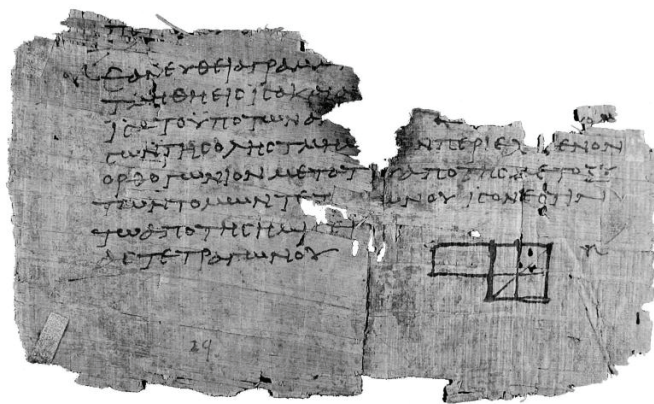 ΕΑΝ ΕΥΘΕΙΑ ΓΡΑΜΜ
ΤΜΗΘΗ ΕΙϹ ΙϹΑ ΚΑΙ Α
ΙϹΑ ΤΟ ΥΠΟ ΤΩΝ ΑΝ
ϹΩΝ ΤΗϹ ΟΛΗϹ ΤΜΗ ΩΝ ΠΕΡΙΕΧΟΜΕΝΟΝ
ΟΡΘΟΓΩΝΙΟΝ ΜΕΤΑ ΤΟΥ ΑΠΟ ΤΗϹ ΜΕΤΟΞΥ
ΤΩΝ ΤΟΜΩΝ ΤΕΤ ΩΝΟΥ ΙϹΟΝ ΕϹΤΙΝ
ΤΩ ΑΠΟ ΤΗϹ ΗΜΙϹΕΙ
ΑϹ ΤΕΤΡΑΓΩΝΟΥ
29